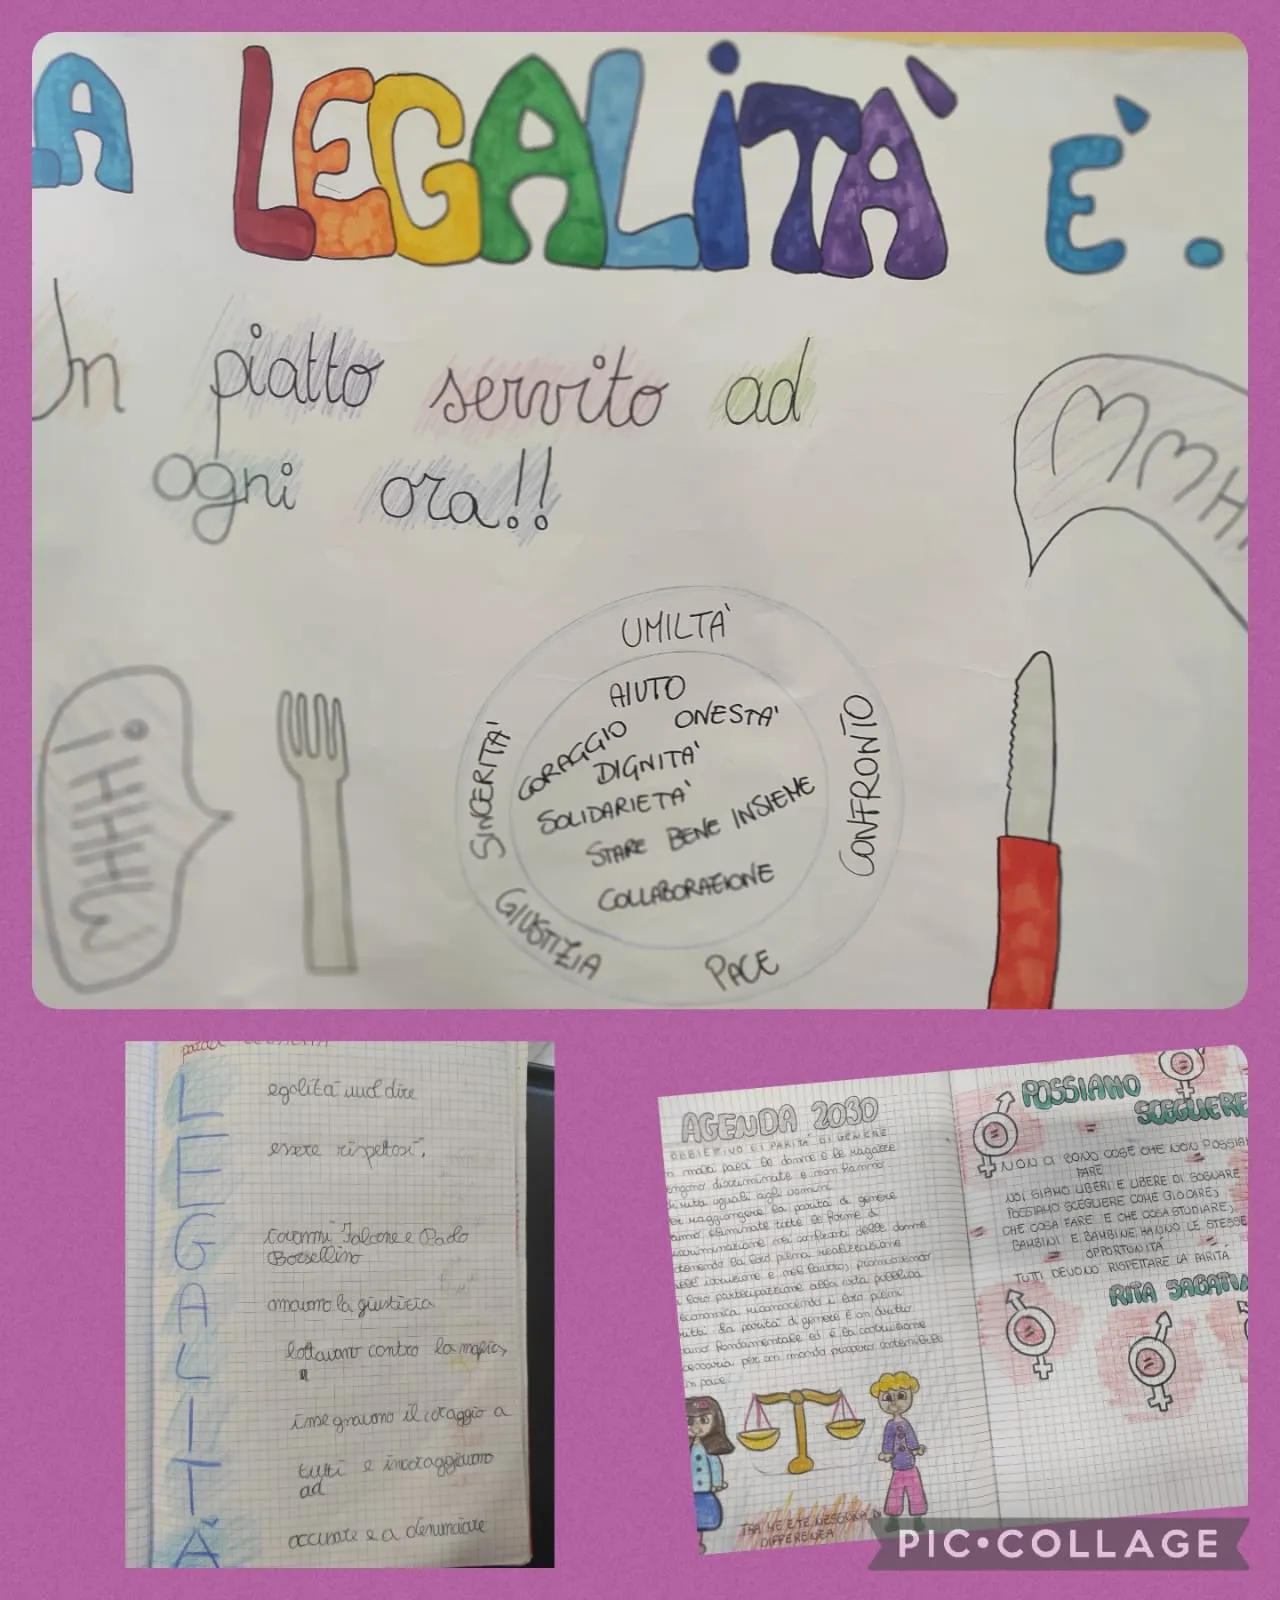 A LEGALITÀ È.
Un piatto servito ad
ogni ora!!
MMH
MHHH!
UMILTÀ
SINCERITÀ
GIUSTIZIA
PACE
CONFRONTO
AIUTO
CORAGGIO ONESTA'
DIGNITA'
SOLIDARIETA'
STARE BENE INSIEME
COLLABORAZIONE
LEGALITÀ
egalità vuol dire
essere rispettosi,
Giovanni Falcone e Paolo
Borsellino
amavano la giustizia
lottavano contro la mafia,
insegnavano il coraggio a
tutti e incoraggiavano
ad
accusare e a denunciare
AGENDA 2030
OBBIETIVO 5: PARITÀ DI GENERE
n molti paesi le donne e le ragazze
engono discriminate e non hanno
diritti uguali agli uomini
er raggiungere la parità di genere
anno eliminate tutte le forme di
iscriminazione nei confronti delle donne
ottenendo la loro piena realizzazione
nell' istruzione e nel lavoro, promuovendo
a loro partecipazione alla vita pubblica
economica riconoscendo i loro pieni
iritti. La parità di genere è un diritto
ano fondamentale ed è la condizione
ecessaria per un mondo prospero sostenibile
in pace
TRA ME E TE NESSUNA DI
DIFFERENZA
POSSIAMO
SCEGLIERE
NON CI SONO COSE CHE NON POSSIA
FARE
NOI SIAMO LIBERI E LIBERE DI SOGNARE
POSSIAMO SCEGLIERE COME GIOCARE,
CHE COSA FARE E CHE COSA STUDIARE,
BAMBINI E BAMBINE HANNO LE STESSE
OPPORTUNITÀ
TUTTI DEVONO RISPETTARE LA PARITÀ
RITA SABATI
PIC•COLLAGE